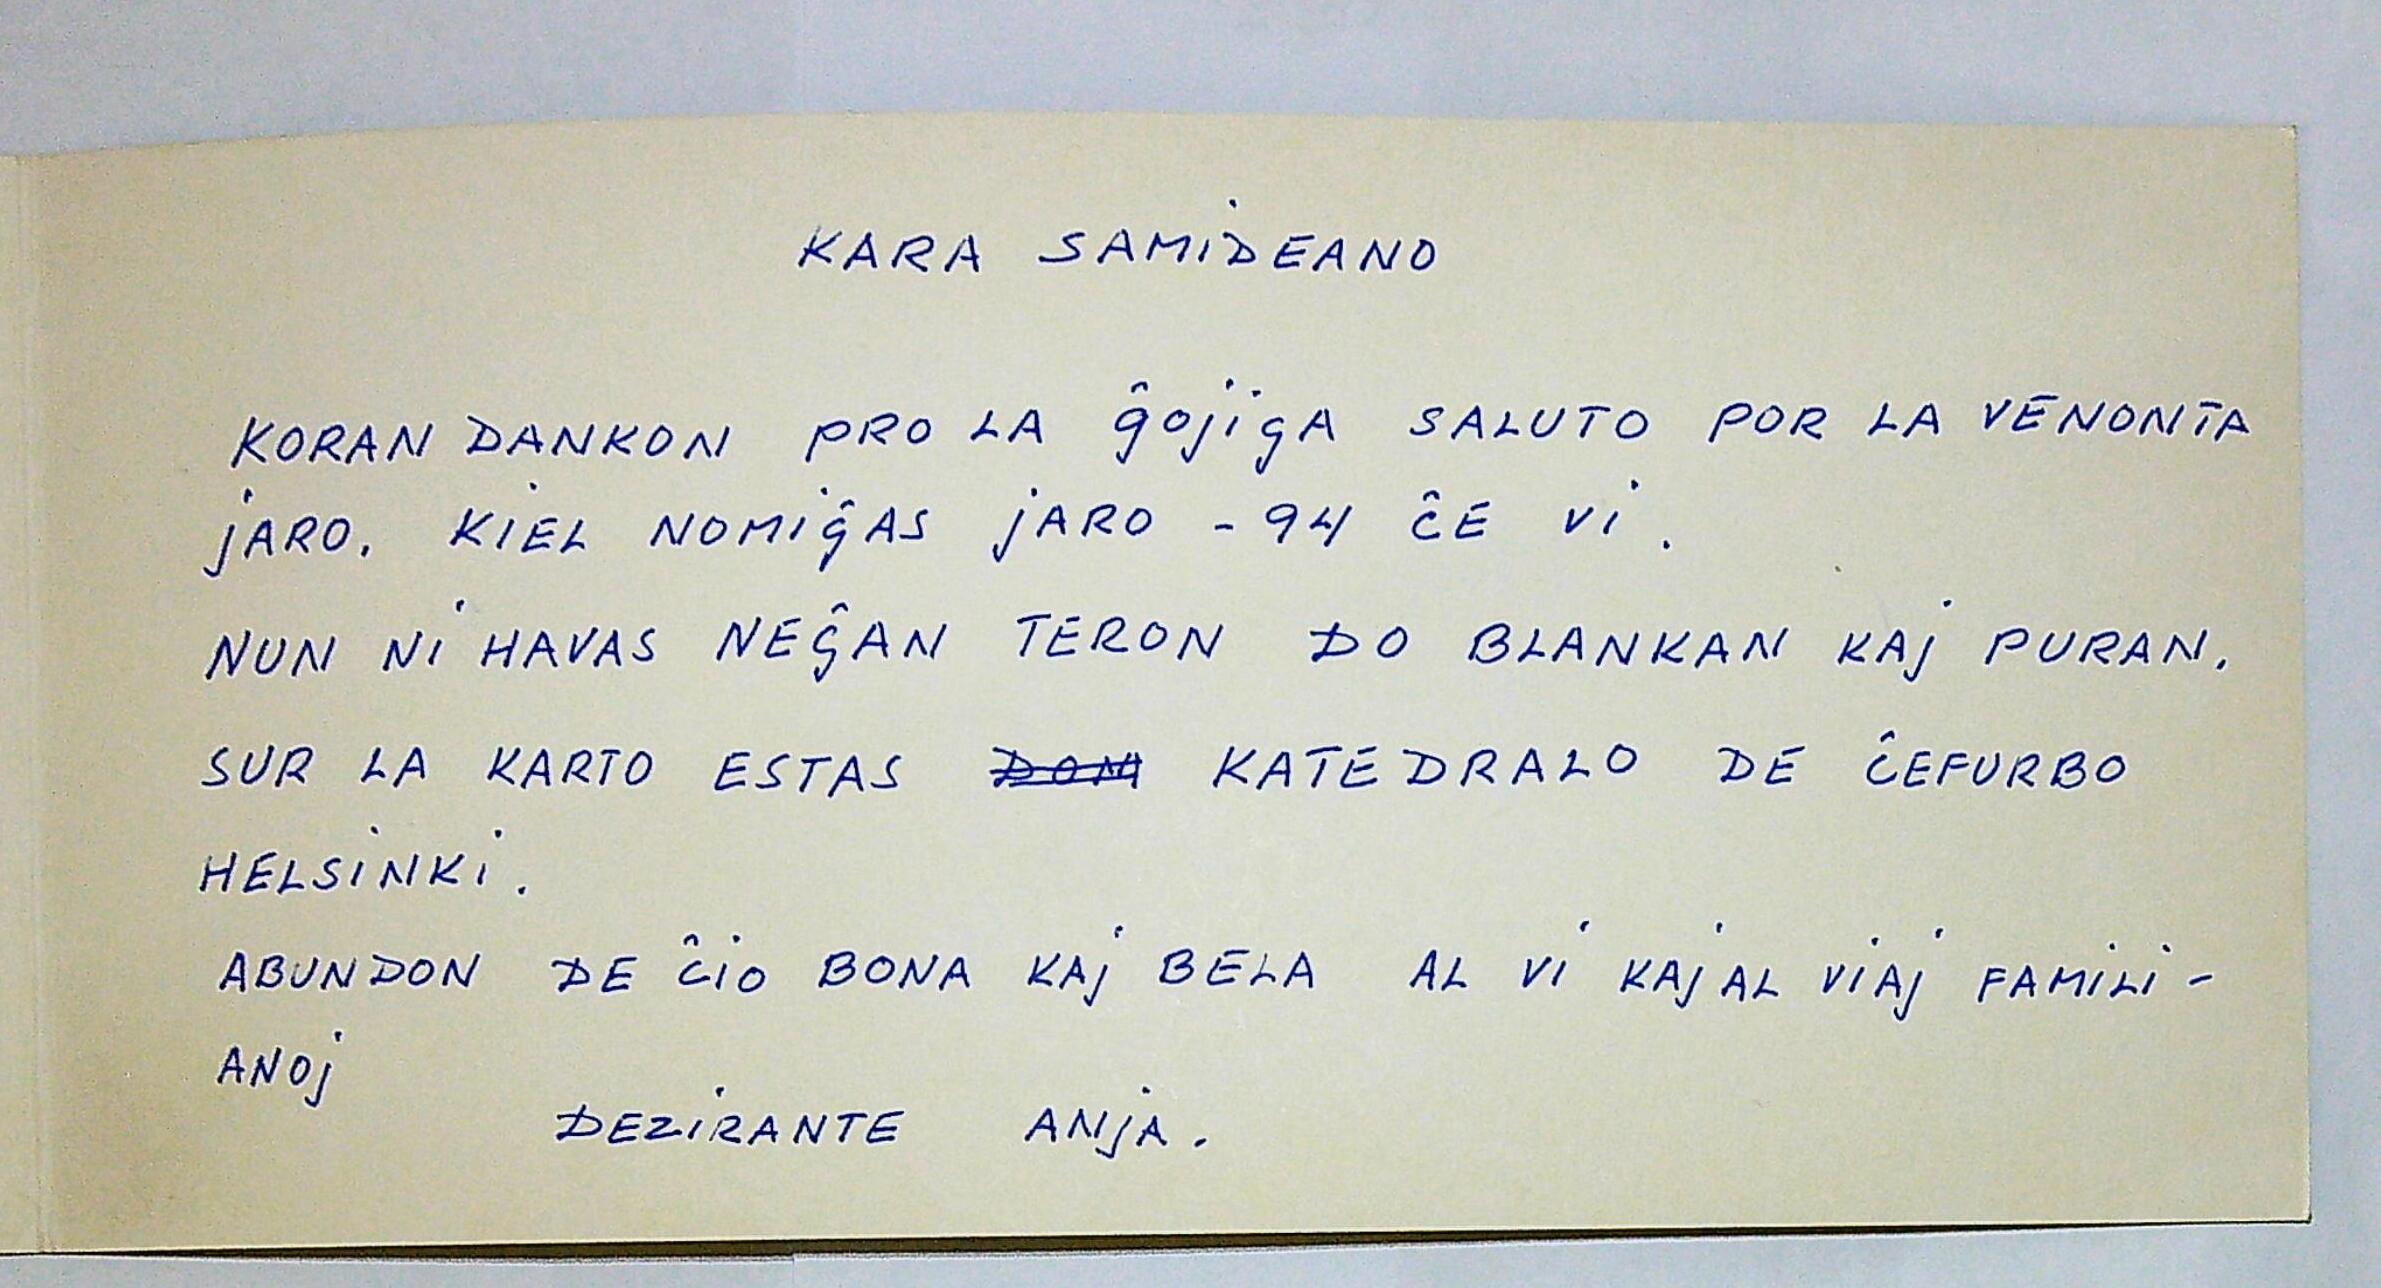 KARA SAMiDEANO
KORAN DANKON PRO LA ĝojigA SALUTO POR LA VENONTA
jARO. KiEL NOMiĝAS jARO - 94 ĈE Vi.
NUN Ni HAVAS NEĜAN TERON DO BLANKAN KAj PURAN.
SUR LA KARTO ESTAS DOM KATEDRALO DE ĈEFURBO
HELSiNKi.
ABUNDON DE ĈiO BONA KAj BELA AL Vi KAj AL ViAj FAMiLi-
ANOj
DEZiRANTE ANjA.